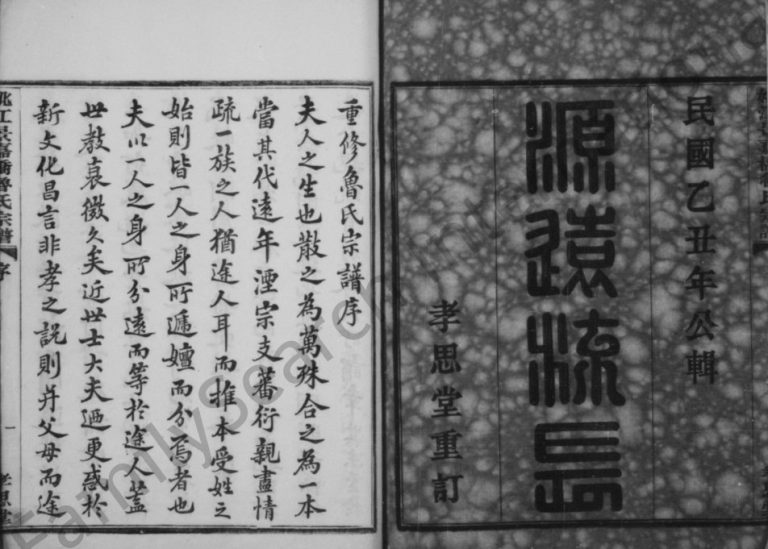 民國乙丑年公輯
源遠流長
孝思堂重訂
重修魯氏宗譜序
夫人之生也散之為萬殊合之為一本
當其代遠年湮宗支蕃衍親盡情
疏一族之人猶途人耳而推本受姓之
始則皆一人之身所遞嬗而分焉者也
夫以一人之身所分遠而等於途人蓋
世教衰微久矣近世士大夫迺更惑於
新文化昌言非孝之說則并父母而途
姚江景嘉橋魯氏宗譜
序
一
孝思堂
FamilySearch